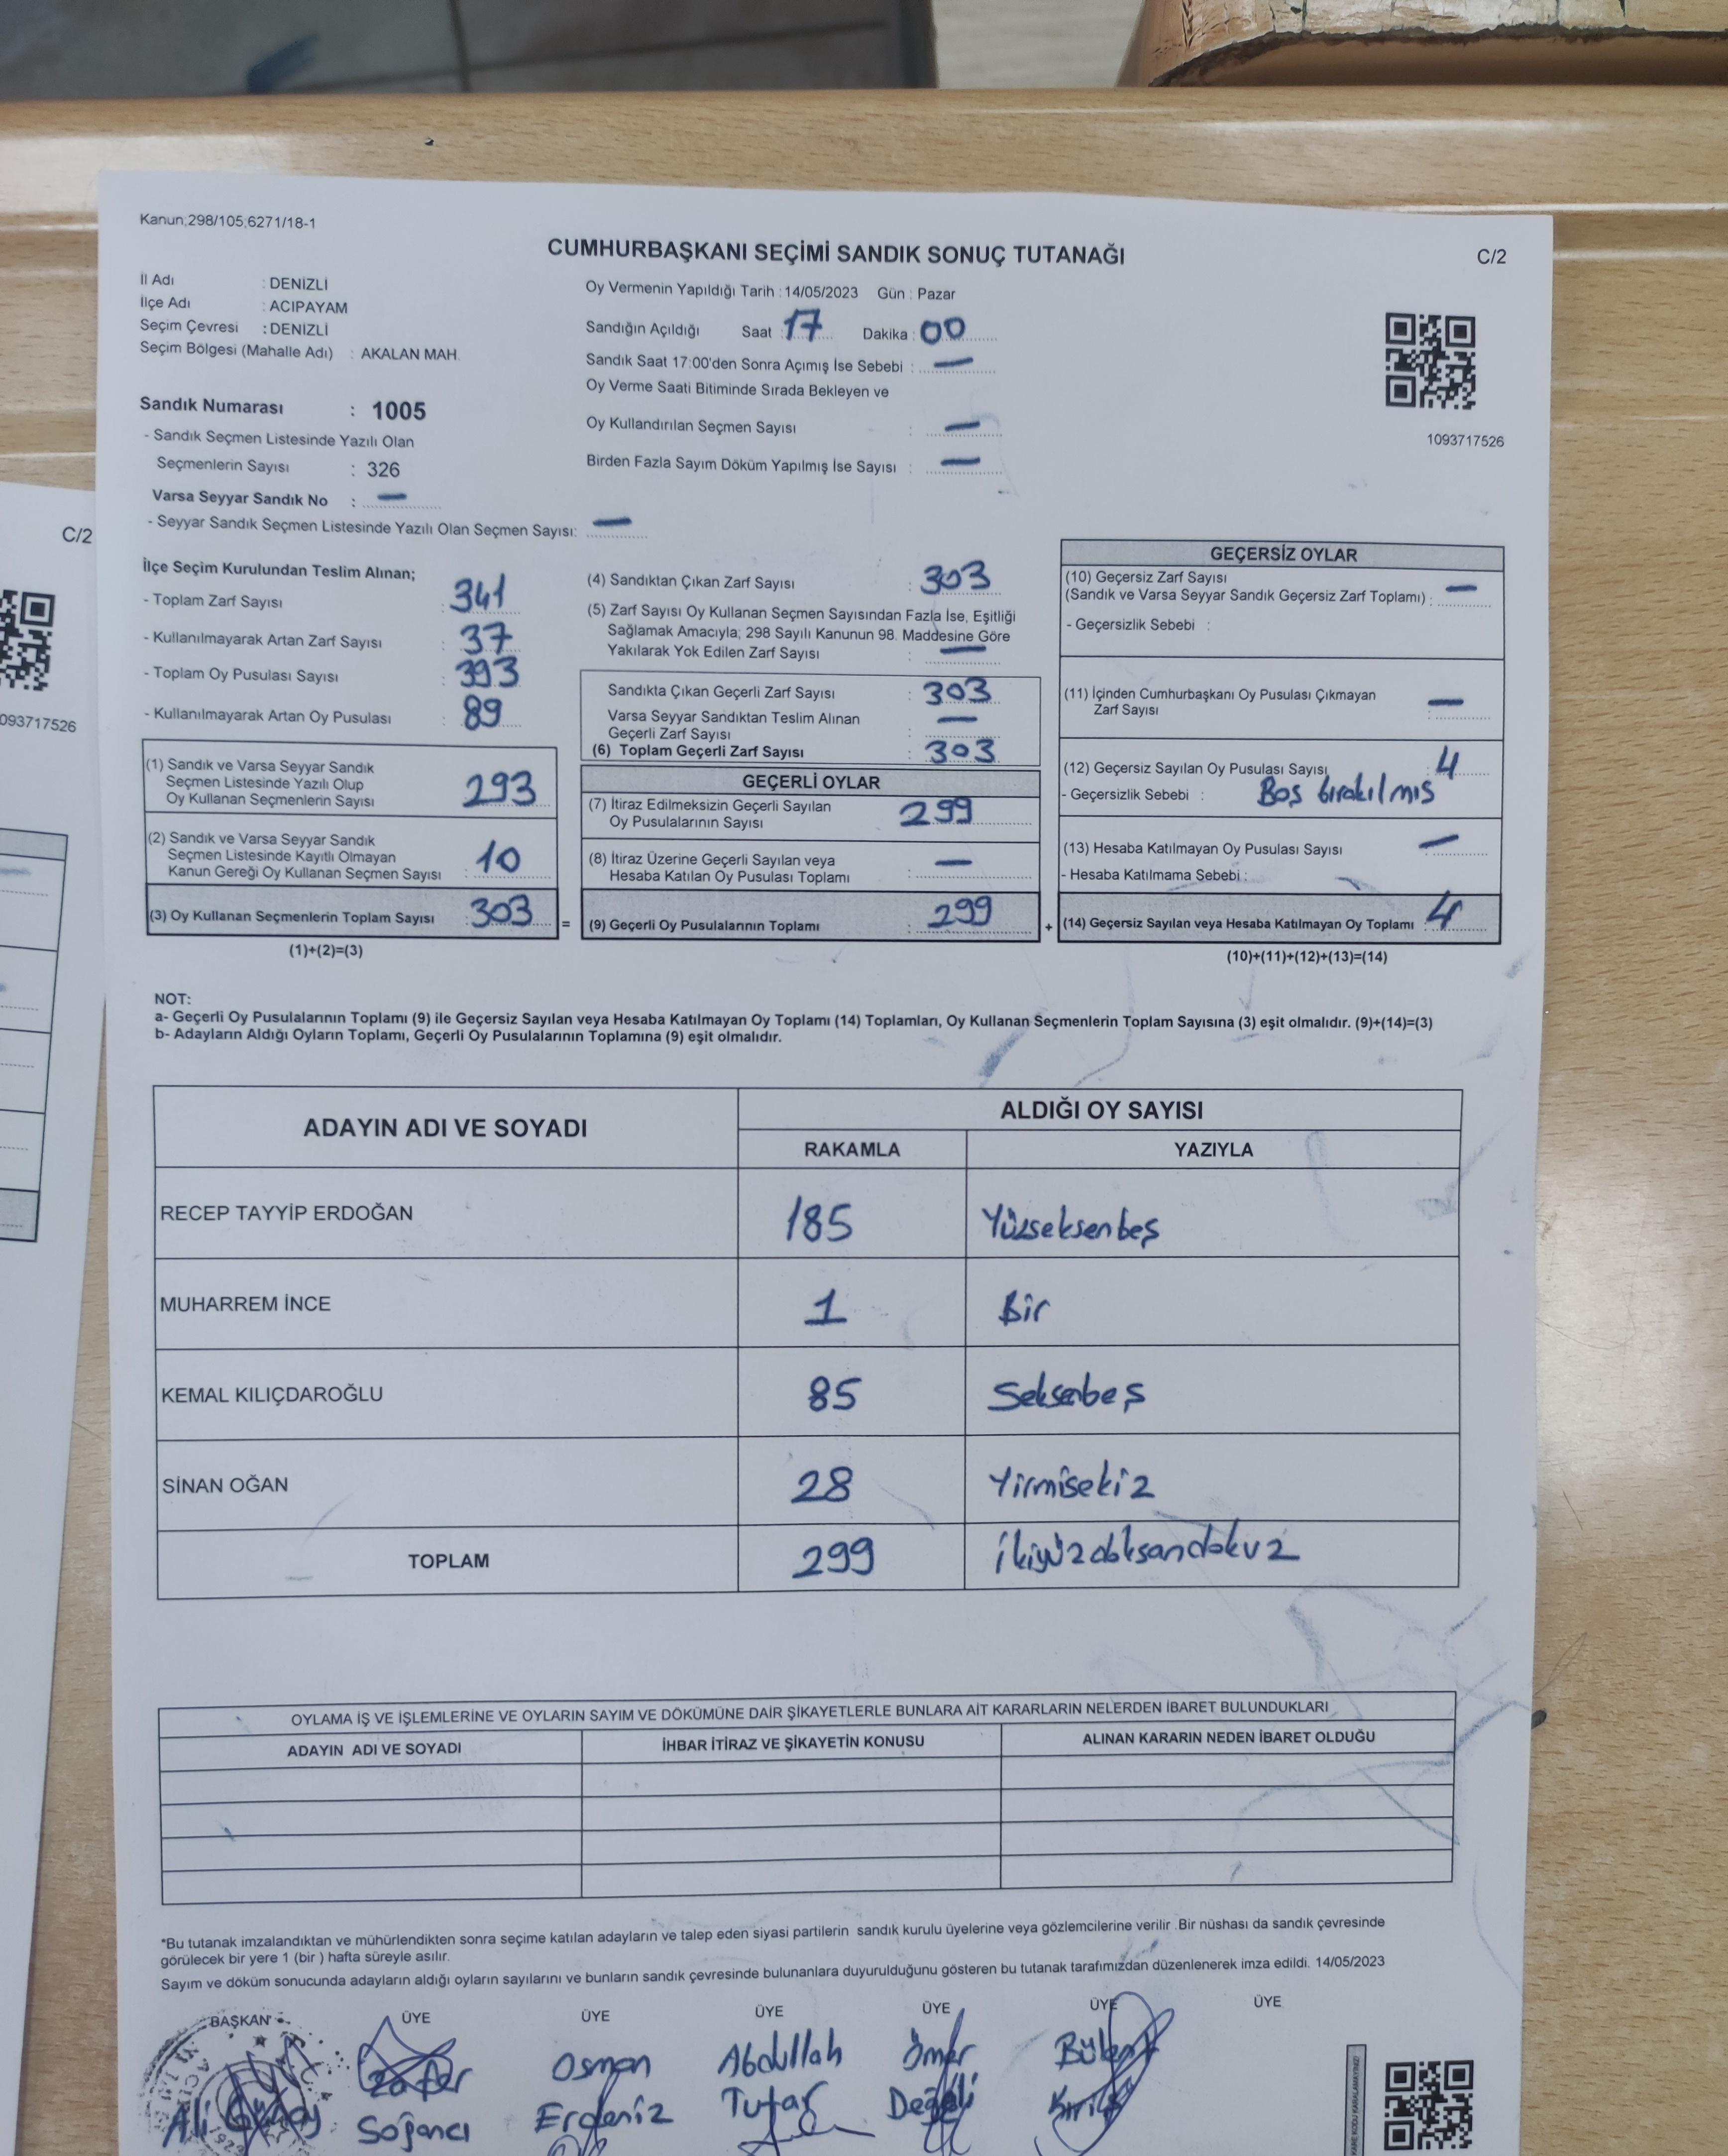 Kanun;298/105,6271/18-1
CUMHURBAŞKANI SEÇİMİ SANDIK SONUÇ TUTANAĞI
C/2
İl Adı : DENİZLİ
İlçe Adı : ACIPAYAM
Seçim Çevresi : DENİZLİ
Seçim Bölgesi (Mahalle Adı) : AKALAN MAH.
Oy Vermenin Yapıldığı Tarih : 14/05/2023 Gün : Pazar
Sandığın Açıldığı Saat : 17 Dakika : 00
Sandık Saat 17:00'den Sonra Açımış İse Sebebi : —
Oy Verme Saati Bitiminde Sırada Bekleyen ve
Oy Kullandırılan Seçmen Sayısı : —
Birden Fazla Sayım Döküm Yapılmış İse Sayısı : —
1093717526
Sandık Numarası : 1005
- Sandık Seçmen Listesinde Yazılı Olan
Seçmenlerin Sayısı : 326
Varsa Seyyar Sandık No : —
- Seyyar Sandık Seçmen Listesinde Yazılı Olan Seçmen Sayısı: —
İlçe Seçim Kurulundan Teslim Alınan;
- Toplam Zarf Sayısı : 341
- Kullanılmayarak Artan Zarf Sayısı : 37
- Toplam Oy Pusulası Sayısı : 393
- Kullanılmayarak Artan Oy Pusulası : 89
(1) Sandık ve Varsa Seyyar Sandık
Seçmen Listesinde Yazılı Olup
Oy Kullanan Seçmenlerin Sayısı : 293
(2) Sandık ve Varsa Seyyar Sandık
Seçmen Listesinde Kayıtlı Olmayan
Kanun Gereği Oy Kullanan Seçmen Sayısı : 10
(3) Oy Kullanan Seçmenlerin Toplam Sayısı : 303 =
(1)+(2)=(3)
(4) Sandıktan Çıkan Zarf Sayısı : 303
(5) Zarf Sayısı Oy Kullanan Seçmen Sayısından Fazla İse, Eşitliği
Sağlamak Amacıyla; 298 Sayılı Kanunun 98. Maddesine Göre
Yakılarak Yok Edilen Zarf Sayısı : —
Sandıkta Çıkan Geçerli Zarf Sayısı : 303
Varsa Seyyar Sandıktan Teslim Alınan
Geçerli Zarf Sayısı : —
(6) Toplam Geçerli Zarf Sayısı : 303
GEÇERLİ OYLAR
(7) İtiraz Edilmeksizin Geçerli Sayılan
Oy Pusulalarının Sayısı 299
(8) İtiraz Üzerine Geçerli Sayılan veya
Hesaba Katılan Oy Pusulası Toplamı : —
(9) Geçerli Oy Pusulalarının Toplamı : 299 +
GEÇERSİZ OYLAR
(10) Geçersiz Zarf Sayısı
(Sandık ve Varsa Seyyar Sandık Geçersiz Zarf Toplamı) : —
- Geçersizlik Sebebi :
(11) İçinden Cumhurbaşkanı Oy Pusulası Çıkmayan
Zarf Sayısı : —
(12) Geçersiz Sayılan Oy Pusulası Sayısı : 4
- Geçersizlik Sebebi : Boş bırakılmış
(13) Hesaba Katılmayan Oy Pusulası Sayısı : —
- Hesaba Katılmama Sebebi :
(14) Geçersiz Sayılan veya Hesaba Katılmayan Oy Toplamı : 4
(10)+(11)+(12)+(13)=(14)
NOT:
a- Geçerli Oy Pusulalarının Toplamı (9) ile Geçersiz Sayılan veya Hesaba Katılmayan Oy Toplamı (14) Toplamları, Oy Kullanan Seçmenlerin Toplam Sayısına (3) eşit olmalıdır. (9)+(14)=(3)
b- Adayların Aldığı Oyların Toplamı, Geçerli Oy Pusulalarının Toplamına (9) eşit olmalıdır.
ADAYIN ADI VE SOYADI ALDIĞI OY SAYISI
RAKAMLA YAZIYLA
RECEP TAYYİP ERDOĞAN 185 Yüzseksenbeş
MUHARREM İNCE 1 Bir
KEMAL KILIÇDAROĞLU 85 Seksenbeş
SİNAN OĞAN 28 Yirmisekiz
TOPLAM 299 İkiyüzdoksandokuz
OYLAMA İŞ VE İŞLEMLERİNE VE OYLARIN SAYIM VE DÖKÜMÜNE DAİR ŞİKAYETLERLE BUNLARA AİT KARARLARIN NELERDEN İBARET BULUNDUKLARI
ADAYIN ADI VE SOYADI İHBAR İTİRAZ VE ŞİKAYETİN KONUSU ALINAN KARARIN NEDEN İBARET OLDUĞU
*Bu tutanak imzalandıktan ve mühürlendikten sonra seçime katılan adayların ve talep eden siyasi partilerin sandık kurulu üyelerine veya gözlemcilerine verilir .Bir nüshası da sandık çevresinde
görülecek bir yere 1 (bir ) hafta süreyle asılır.
Sayım ve döküm sonucunda adayların aldığı oyların sayılarını ve bunların sandık çevresinde bulunanlara duyurulduğunu gösteren bu tutanak tarafımızdan düzenlenerek imza edildi. 14/05/2023
BAŞKAN ÜYE ÜYE ÜYE ÜYE ÜYE ÜYE
Zafer Osman Abdullah Ömer Bülent
Ali Soğancı Erdeniz Tutar Değeli
C/2
093717526